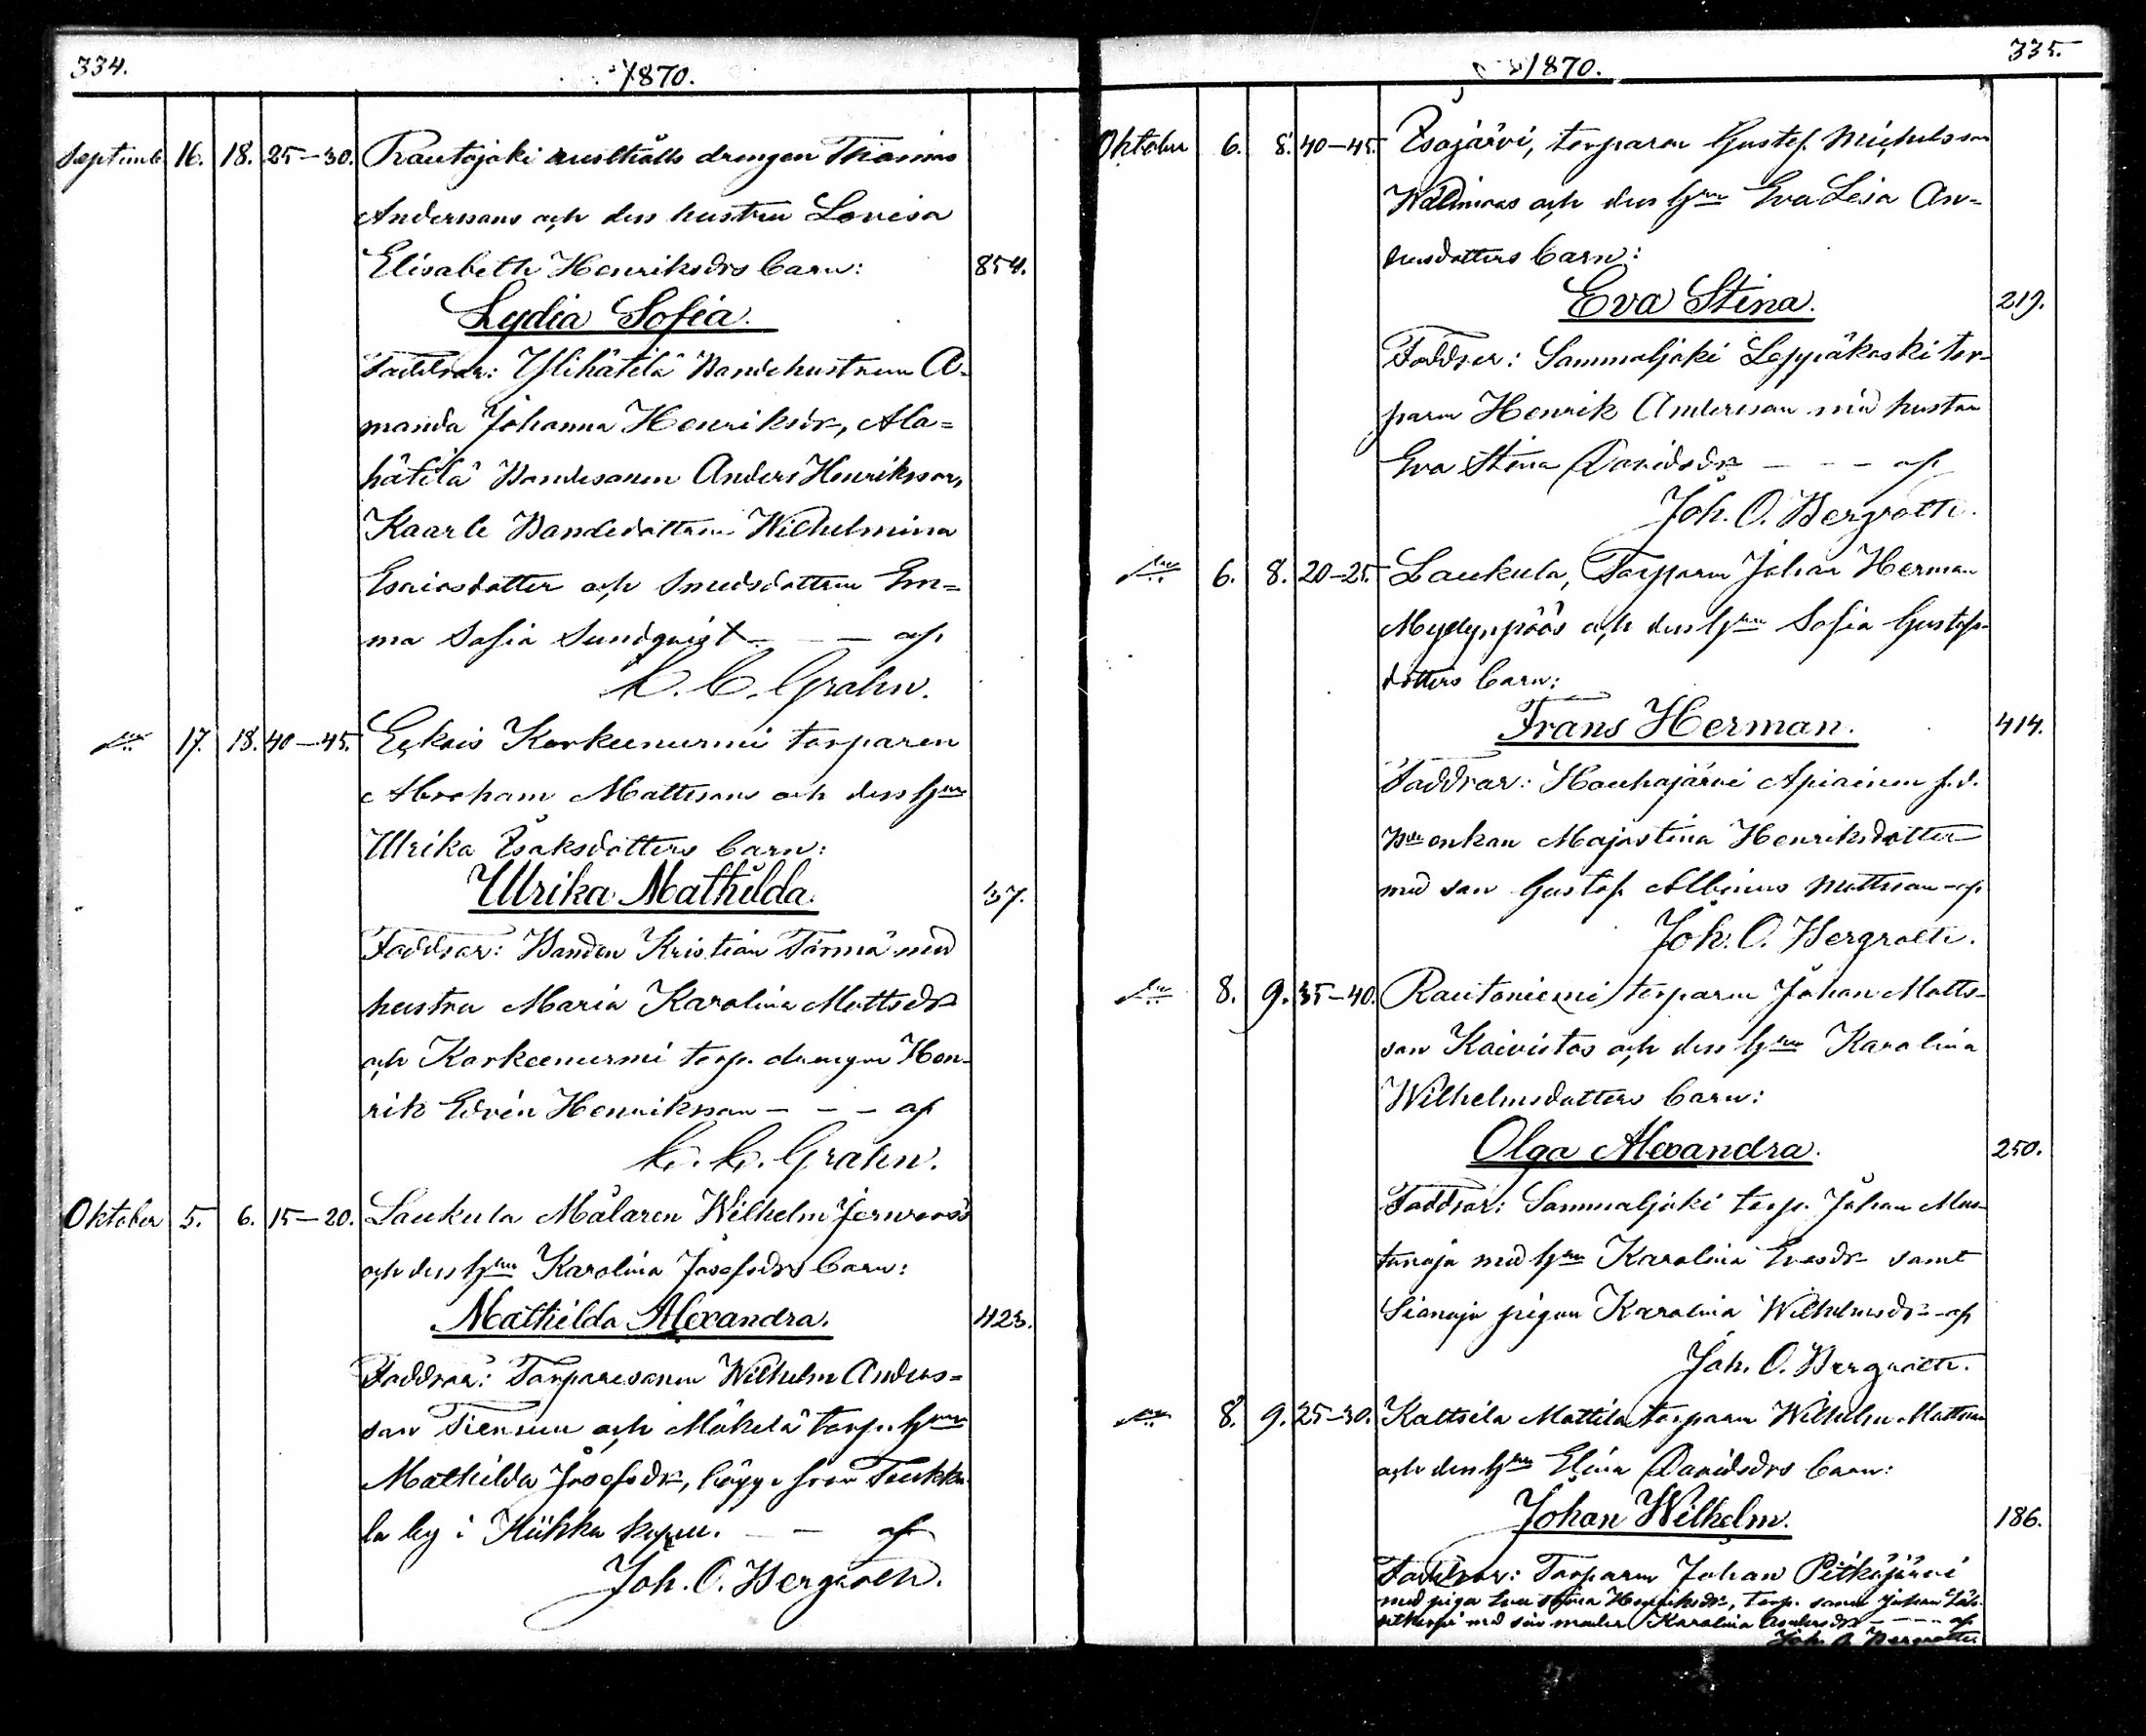 334.
1870.
Septemb 16. 18. 25–30. Rautajoki rusthålls drengen Thomas
Anderssons och dess hustru Lovisa
Elisabeth Henriksdrs barn: 854.
Lydia Sofia.
Faddrar: Ylihätilä Bondehustrun A-
manda Johanna Henriksdr, Ala=
hätilä Bondesonen Anders Henriksson,
Kaarle Bondedottren Wilhelmina
Esaiasdotter och Smedsdottren Em=
ma Sofia Sundqvist – – – af
C. C. Grahn.
17. 18. 40–45. Korkeenurmi torparen
Abraham Mattssons och dess hru
Ulrika Isaksdotters barn:
Ulrika Mathilda. 37.
Faddrar: Bonden Kristian Törmä med
hustru Maria Karolina Mattsdr
och Korkeenurmi torp. drengen Hen-
rik Edvin Henriksson – – – af
C. C. Grahn.
Oktober 5. 6. 15–20. Laukula Målaren Wilhelm
och dess hru Karolina Josefsdrs barn:
Mathilda Alexandra. 423.
Faddrar: Torparesonen Wilhelm Anders=
son och Mäkelä torp. hru
Mathilda Josefsdr, bägge från
la by i – – af
Joh. O. Bergroth.
335.
1870.
Oktober 6. 8. 40–45. Isojärvi, torparen Gustaf Michelsson
och dess hru Eva Lisa An-
dersdotters barn:
Eva Stina. 219.
Faddrar: Sammaljoki Leppäkoski tor-
paren Henrik Andersson med hustru
Eva Stina Davidsdr – – – af
Joh. O. Bergroth.
6. 8. 20–25. Laukula, Torparen Johan Herman
och dess hru Sofia Gustafs-
dotters barn:
Frans Herman. 414.
Faddrar: Houhajärvi Apiainen f.d.
enkan Majastina Henriksdotter
med son Gustaf Albinus Mattsson – af
Joh. O. Bergroth.
8. 9. 35–40. Rautaniemi torparen Johan Matts-
son Koivistos och dess hru Karolina
Wilhelmsdotters barn:
Olga Alexandra. 250.
Faddrar: Sammaljoki torp. Johan Mus-
tanoja med hru Karolina samt
Sianoja pigan Karolina Wilhelmsdr – af
Joh. O. Bergroth.
8. 9. 25–30. Kaltsila Mattila torparen Wilhelm Mattsson
och dess hru Elina Davidsdrs barn:
Johan Wilhelm. 186.
Faddrar: Torparen Johan Pitkäjärvi
med pigan Stina Henriksdr, torp. sonen Johan
med sin moder Karolina Andersdr – – – af
Joh. O. Bergroth